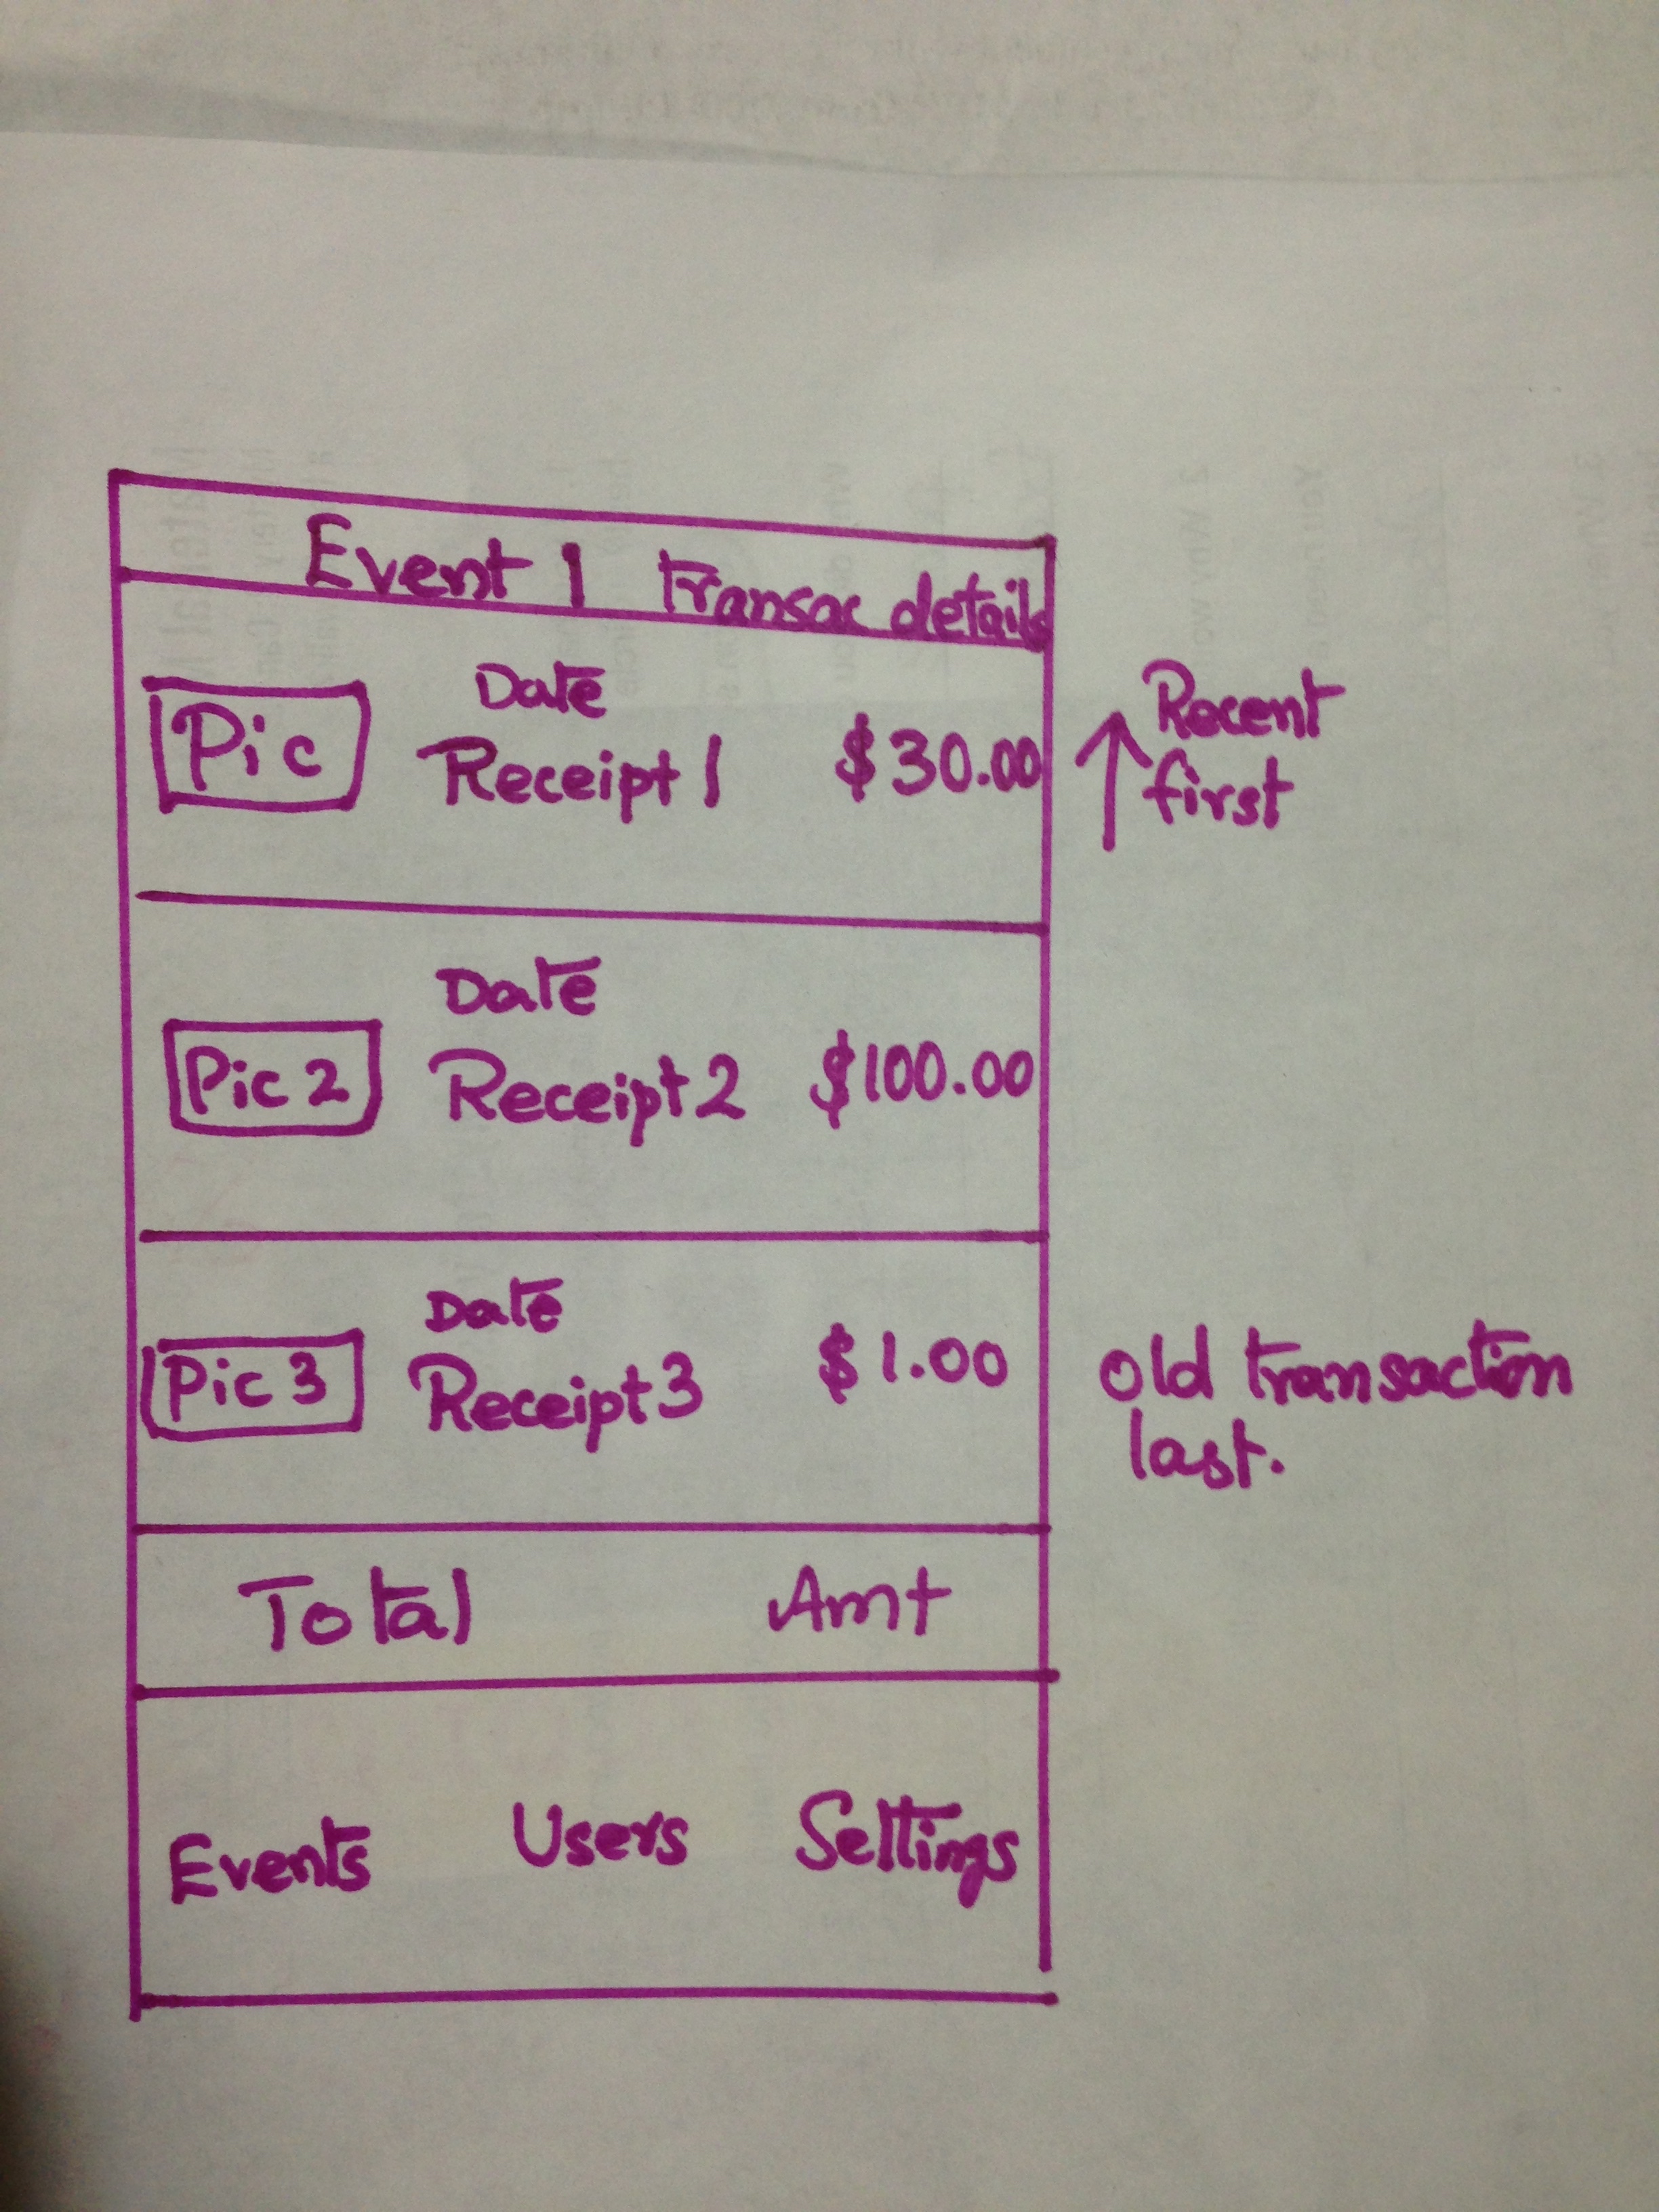 Event 1 Transac details
Date
Pic Receipt 1 $30.00
Recent
first
Date
Pic 2 Receipt 2 $100.00
Date
Pic 3 Receipt 3 $1.00
old transaction
last.
Total Amt
Events Users Settings